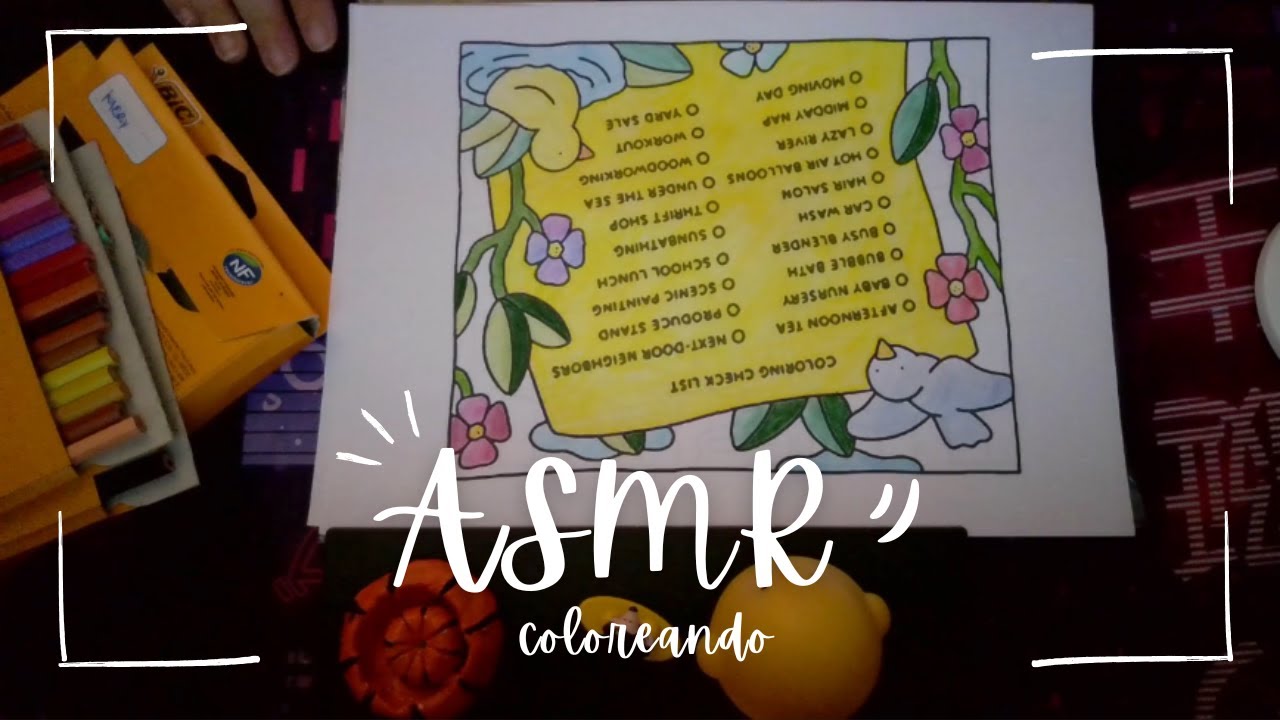 BIC
NF
COLORING CHECK LIST
AFTERNOON TEA
BABY NURSERY
BUBBLE BATH
BUSY BLENDER
CAR WASH
HAIR SALON
HOT AIR BALLOONS
LAZY RIVER
MIDDAY NAP
MOVING DAY
NEXT-DOOR NEIGHBORS
PRODUCE STAND
SCENIC PAINTING
SCHOOL LUNCH
SUNBATHING
THRIFT SHOP
UNDER THE SEA
WOODWORKING
WORKOUT
YARD SALE
ASMR
coloreando